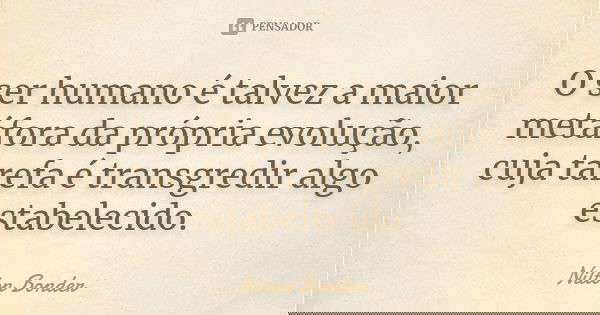 PENSADOR
O ser humano é talvez a maior
metáfora da própria evolução,
cuja tarefa é transgredir algo
estabelecido.
Nilton Bonder